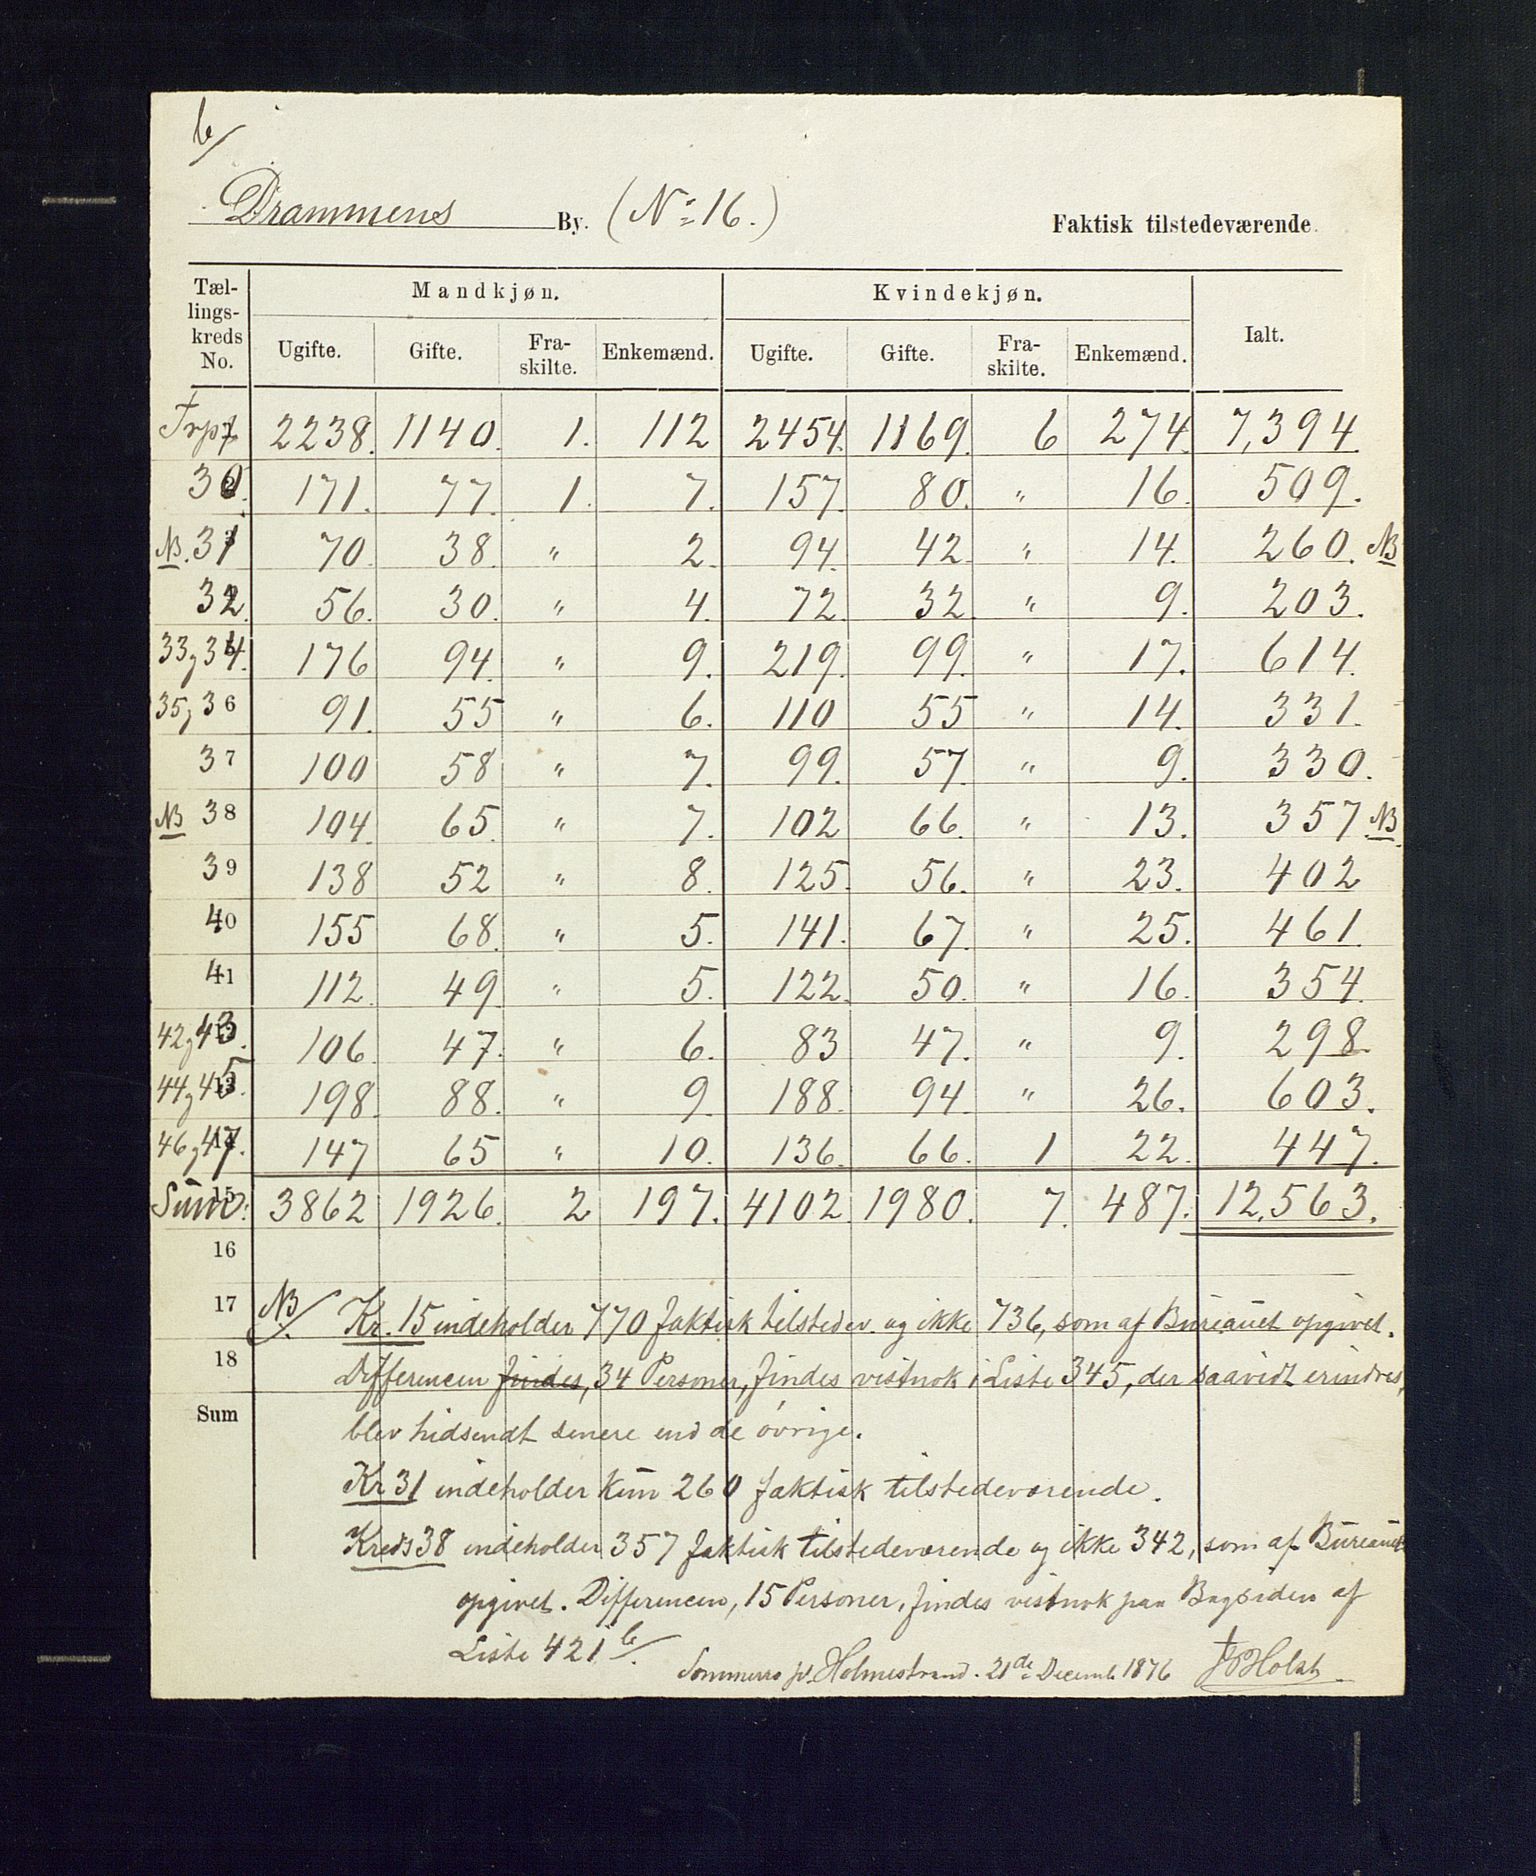 b/
Drammens By. (No 16.) Faktisk tilstedeværende.
Tællingskreds No. Mandkjøn. Kvindekjøn. Ialt.
Ugifte. Gifte. Fraskilte. Enkemænd. Ugifte. Gifte. Fraskilte. Enkemænd.
Trpt 2238. 1140. 1. 112 2454. 1169. 6 274. 7,394.
30. 171. 77. 1. 7. 157. 80. " 16. 509.
NB. 31 70 38. " 2. 94. 42 " 14. 260. NB
32. 56. 30. " 4. 72. 32. " 9. 203.
33 og 34. 176 94. " 9. 219. 99. " 17. 614.
35 og 36 91. 55 " 6. 110 55 " 14. 331.
37 100 58 " 7. 99. 57. " 9. 330.
NB 38 104. 65. " 7. 102 66. " 13. 357. NB
39 138 52 " 8. 125. 56. " 23. 402
40 155 68. " 5. 141. 67. " 25. 461.
41 112. 49. " 5. 122. 50. " 16. 354.
42 og 43. 106. 47. " 6. 83 47. " 9. 298.
44 og 45. 198. 88. " 9. 188. 94. " 26. 603.
46 og 47. 147 65 " 10. 136. 66. 1 22. 447.
15 Sum: 3862 1926. 2 197. 4102. 1980. 7. 487. 12,563.
16
17 NB/. Kr. 15 indeholder 770 faktisk tilstedev. og ikke 736, som af Bureauet opgivet.
18 Differencen findes, 34 Personer, findes vistnok i Liste 345, der saavidt erindres,
Sum blev hidsendt senere end de øvrige.
Kr 31 indeholder kun 260 faktisk tilstedeværende.
Kreds 38 indeholder 357 faktisk tilstedeværende og ikke 342, som af Bureauet
opgivet. Differencen, 15 Personer, findes vistnok paa Bagsiden af
Liste 421 b/.
Sommerro pr. Holmestrand. 21de Decemb 1876 Holst